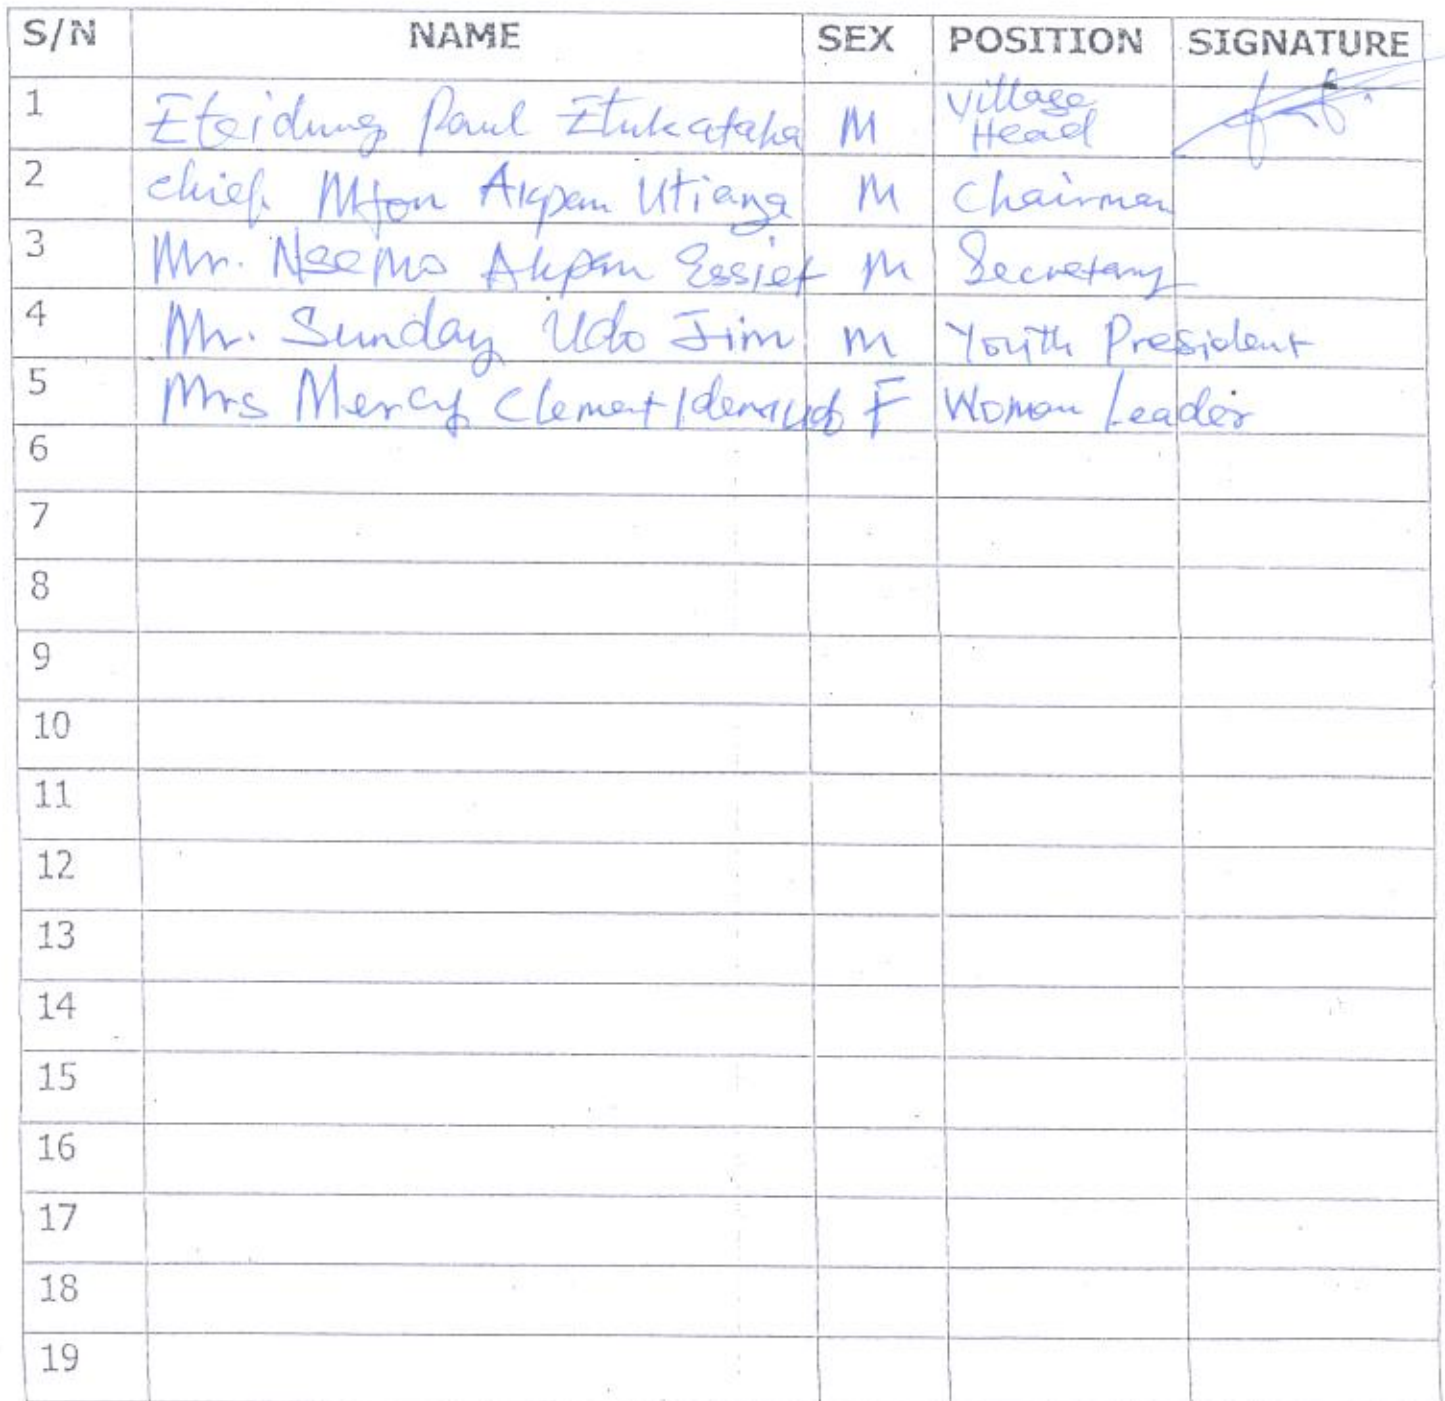 S/N NAME SEX POSITION SIGNATURE
1 Eteidung Paul Etukafaha M Village Head
2 Chief Mfon Akpan Utiang M Chairman
3 Mr. Nsemo Akpan Essiet M Secretary
4 Mr. Sunday Udo Jim M Youth President
5 Mrs Mercy Clement F Woman Leader
6
7
8
9
10
11
12
13
14
15
16
17
18
19